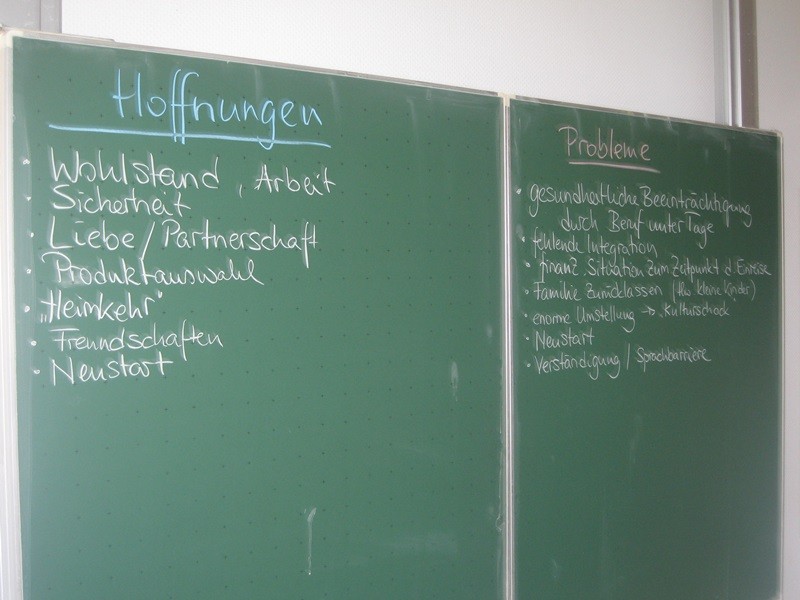 Hoffnungen
• Wohlstand, Arbeit
• Sicherheit
• Liebe / Partnerschaft
• Produktauswahl
• „Heimkehr"
• Freundschaften
• Neustart
Probleme
• gesundheitliche Beeinträchtigung
durch Beruf unter Tage
• fehlende Integration
• finanz. Situation zum Zeitpunkt d. Einreise
• Familie zurücklassen ( kleine Kinder)
• enorme Umstellung → Kulturschock
• Neustart
• Verständigung / Sprachbarriere